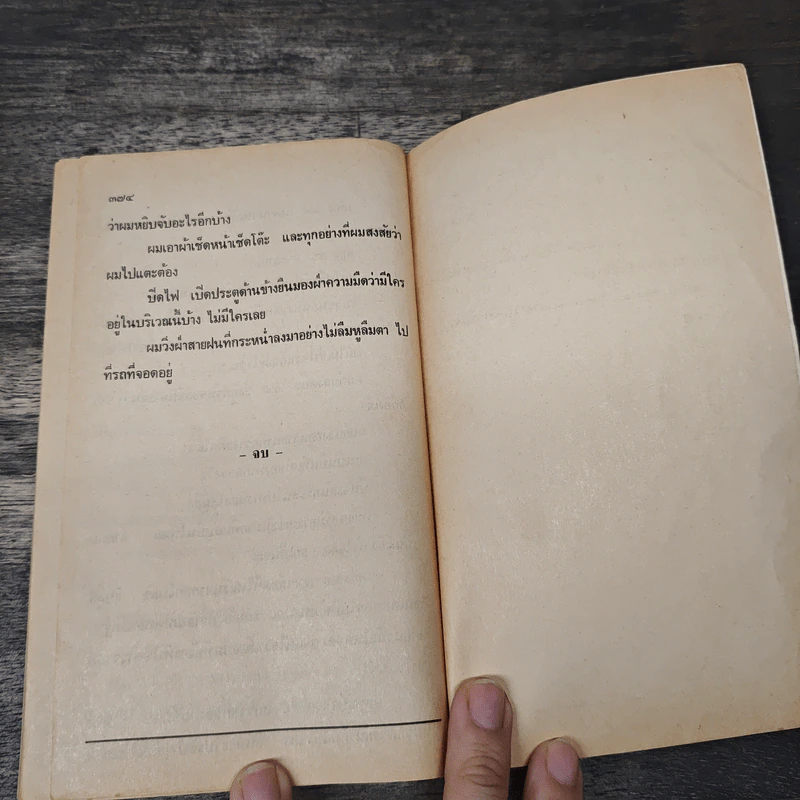 ๓๗๔
ว่าผมหยิบจับอะไรอีกบ้าง
ผมเอาผ้าเช็ดหน้าเช็ดโต๊ะ และทุกอย่างที่ผมสงสัยว่า
ผมไปแตะต้อง
ปิดไฟ เปิดประตูด้านข้างยืนมองฝ่าความมืดว่ามีใคร
อยู่ในบริเวณนี้บ้าง ไม่มีใครเลย
ผมวิ่งฝ่าสายฝนที่กระหน่ำลงมาอย่างไม่ลืมหูลืมตา ไป
ที่รถที่จอดอยู่
- จบ -